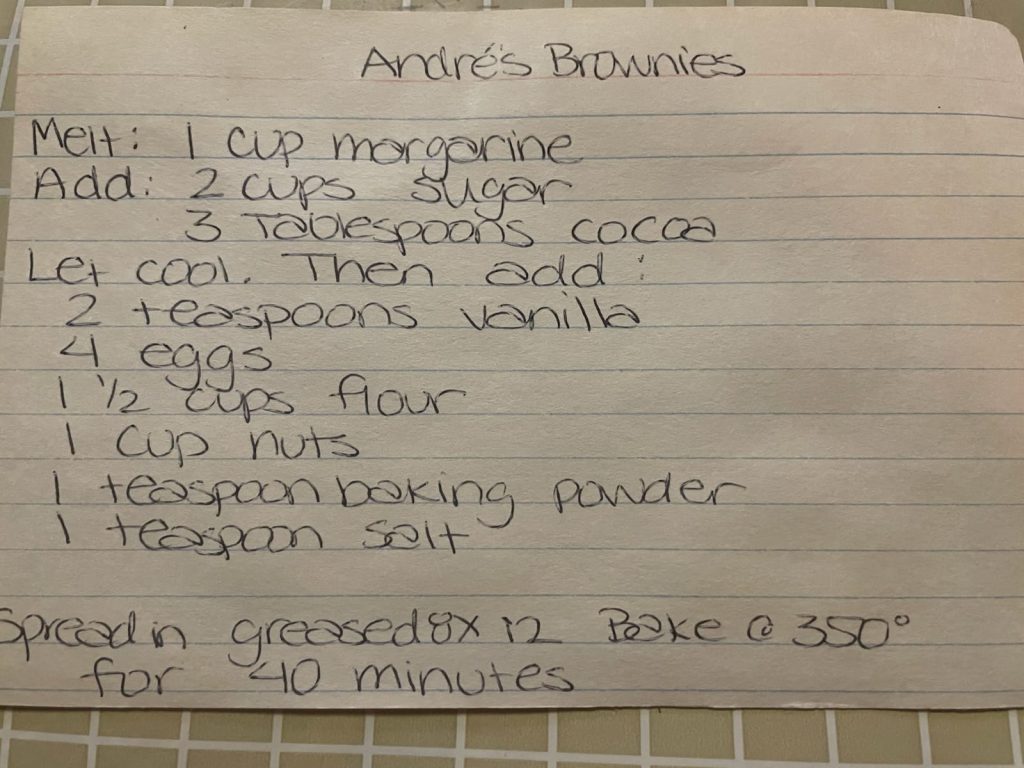 André's Brownies
Melt: 1 cup margarine
Add: 2 cups sugar
3 Tablespoons cocoa
Let cool. Then add:
2 teaspoons vanilla
4 eggs
1 1/2 cups flour
1 cup nuts
1 teaspoon baking powder
1 teaspoon salt
Spread in greased 8x12 Bake @ 350°
for 40 minutes